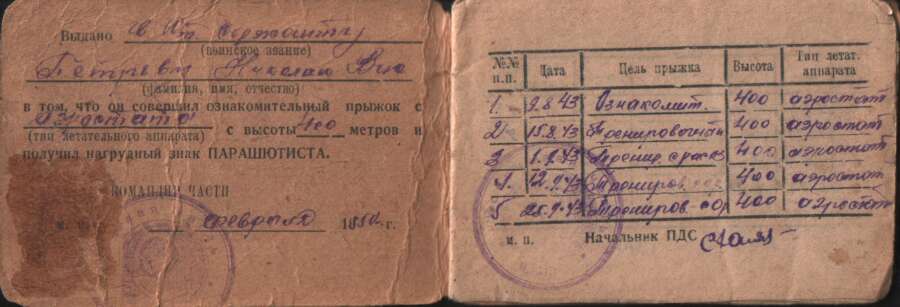 Выдано ст. сержанту
(воинское звание)
Петрев Николай
(фамилия, имя, отчество)
в том, что он совершил ознакомительный прыжок с
аэростата
(тип летательного аппарата) с высоты 400 метров и
получил нагрудный знак ПАРАШЮТИСТА.
КОМАНДИР ЧАСТИ
февраля г.
№№ п.п. Дата Цель прыжка Высота Тип летат. аппарата
1. 9.8.43 Ознакомит. 400 аэростат
2 15.8.43 Тренировочный 400 аэростат
3 1.9.43 400 аэростат
4. 12.9.43 Трениров 400 аэростат
5 25.9.43 Трениров. 400 аэростат
м. п. Начальник ПДС